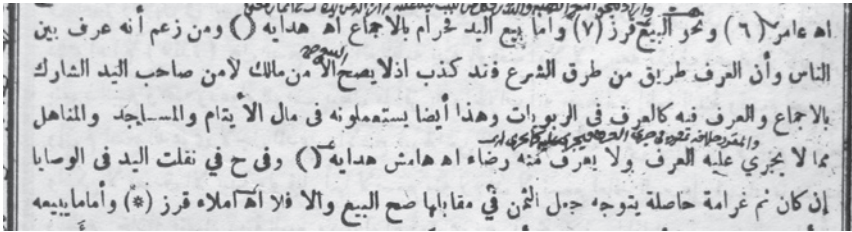 اه عامر (٦) ونحو البيع قرز (٧) وأما بيع اليد فحرام بالاجماع اه هدايه () ومن زعم أنه عرف بين
الناس وأن العرف طريق من طرق الشرع فقد كذب اذلا يصح الا من مالك لامن صاحب اليد الشارك
بالاجماع والعرف فيه كالعرف في الربويات وهذا أيضا يستعملونه في مال الأيتام والمساجد والمناهل
مما لا يجري عليه العرف ولا يعرف منه رضاء اه هامش هدايه () وفي ح في نقلت اليد في الوصايا
إن كان ثم غرامة حاصلة يتوجه جعل الثمن في مقابلها صح البيع والا فلا اه املاء قرز (*) وأمامايبيعه